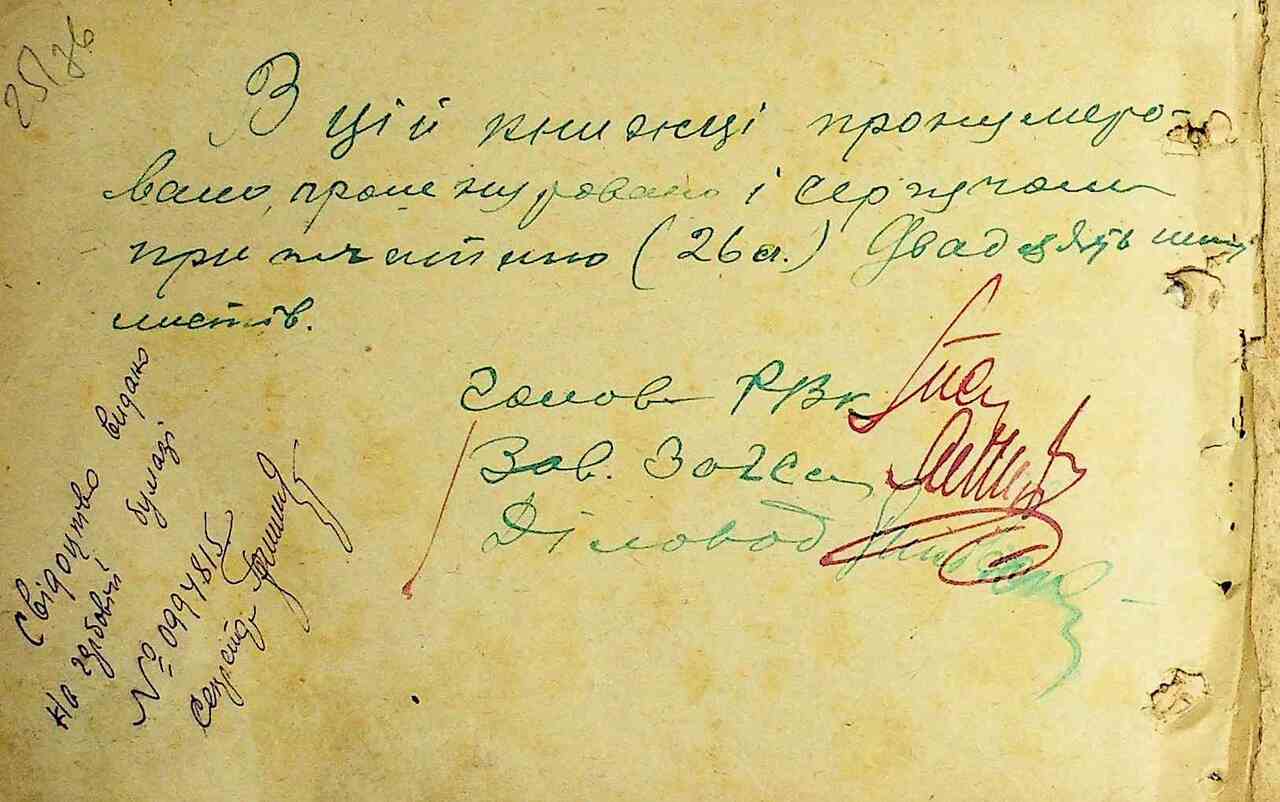 25/76
В цій книжці пронумеро-
вано, прошнуровано і сургучом
припечатано (26 а.) Двадцять шість
листів.
Голов РВК
Зав. ЗАГС
Діловод
Свідоцтво видано
на гербовій бумазі
№ 0994815
Секретар